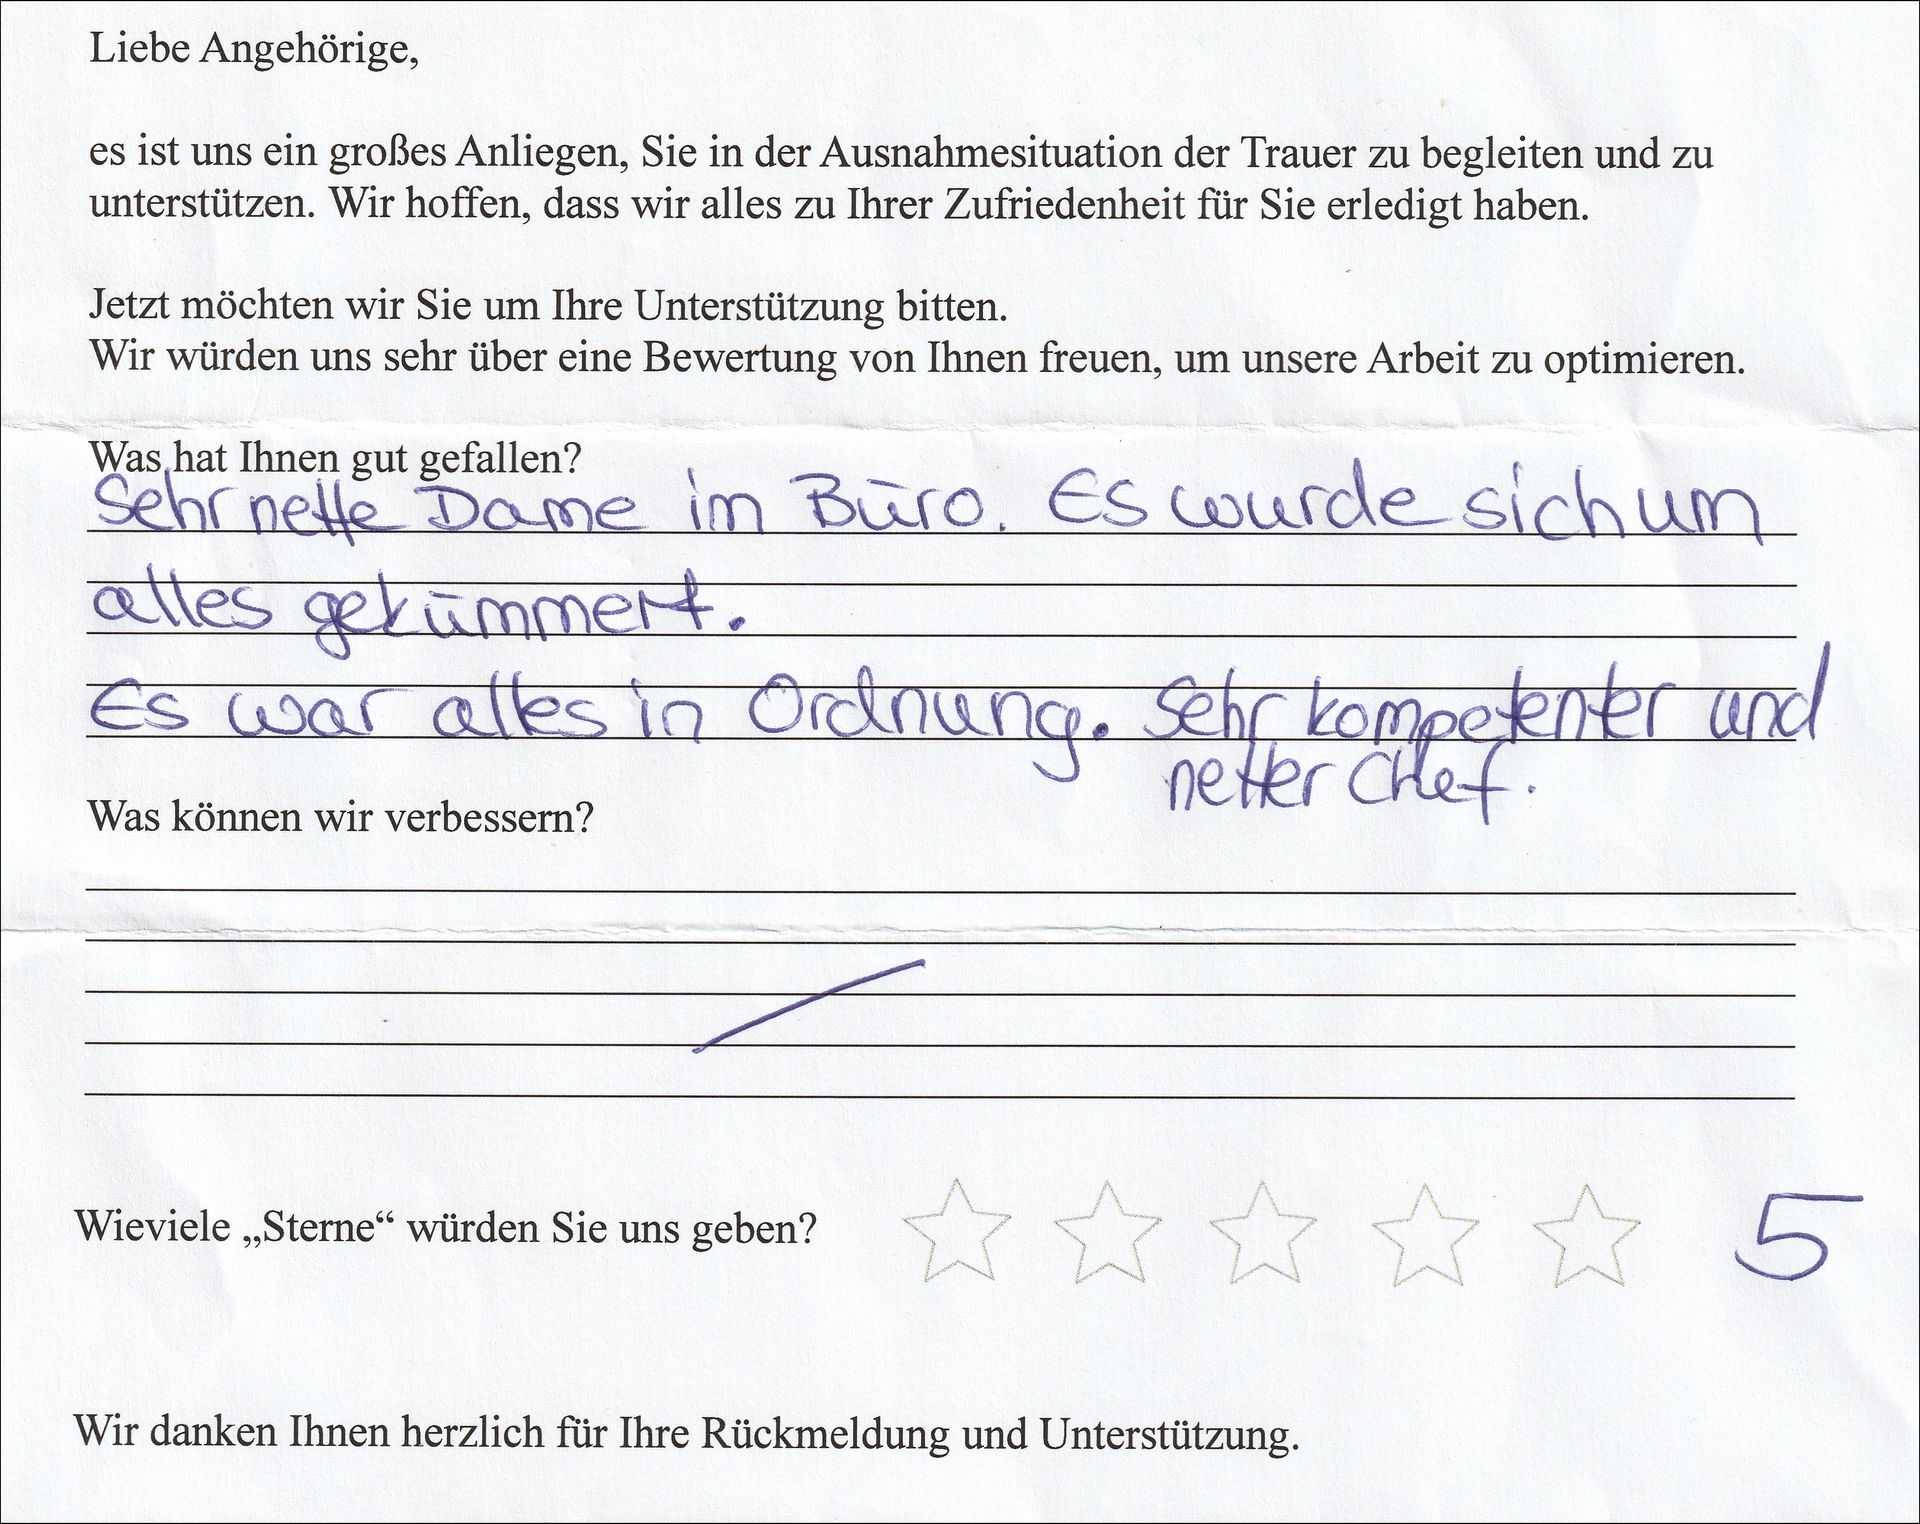 Liebe Angehörige,
es ist uns ein großes Anliegen, Sie in der Ausnahmesituation der Trauer zu begleiten und zu
unterstützen. Wir hoffen, dass wir alles zu Ihrer Zufriedenheit für Sie erledigt haben.
Jetzt möchten wir Sie um Ihre Unterstützung bitten.
Wir würden uns sehr über eine Bewertung von Ihnen freuen, um unsere Arbeit zu optimieren.
Was hat Ihnen gut gefallen?
Sehr nette Dame im Büro. Es wurde sich um
alles gekümmert.
Es war alles in Ordnung. Sehr kompetenter und
netter Chef.
Was können wir verbessern?
Wieviele „Sterne“ würden Sie uns geben? 5
Wir danken Ihnen herzlich für Ihre Rückmeldung und Unterstützung.